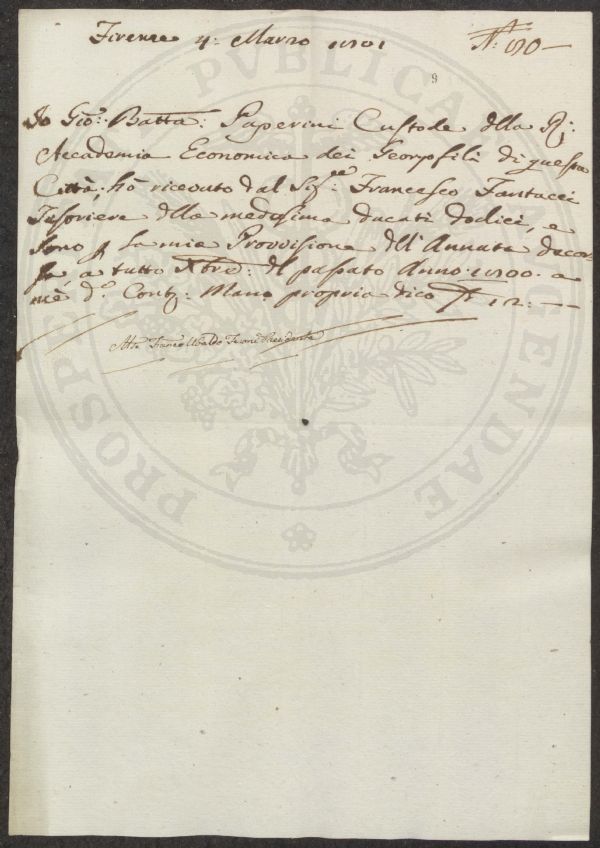 Firenze 4: Marzo 1801
N.° 190 —
9
Io Gio: Batta: Paperini Custode della R:
Accademia Economica dei Georgofili di questa
Città, hò riceuto dal Sig.re Francesco Fantacci
Tesoriere della medesima ducati dodici, e
sono p la mia Provvisione dell'Annata decor-
sa a tutto Xbre: del passato Anno 1800. a
mè d.o Cont: Mano propria dico 12: —
Presidente
PROSPERITATI PVBLICAE AVGENDAE